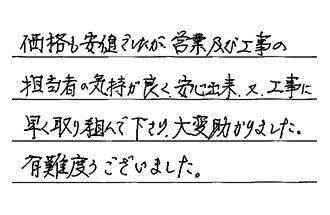 価格も安値でしたが、営業及び工事の
担当者の気持が良く、安心出来、又、工事に
早く取り組んで下さり、大変助かりました。
有難度うございました。